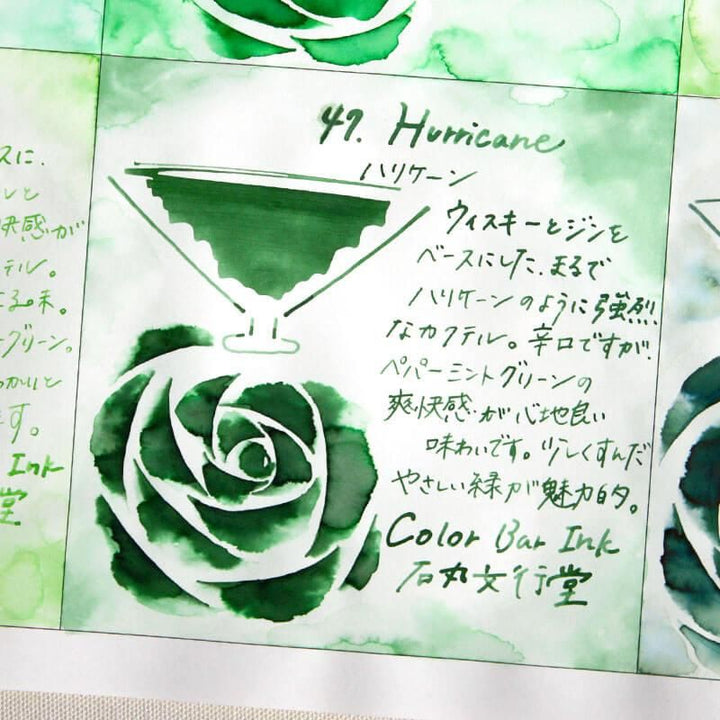 47. Hurricane
ハリケーン
ウィスキーとジンを
ベースにした、まるで
ハリケーンのように強烈
なカクテル。辛口ですが、
ペパーミントグリーンの
爽快感が心地良い
味わいです。少しくすんだ
やさしい緑が魅力的。
Color Bar Ink
石丸文行堂
スに、
レと
快感が
テル。
る味。
グリーン。
かいと
ます。
Ink
堂